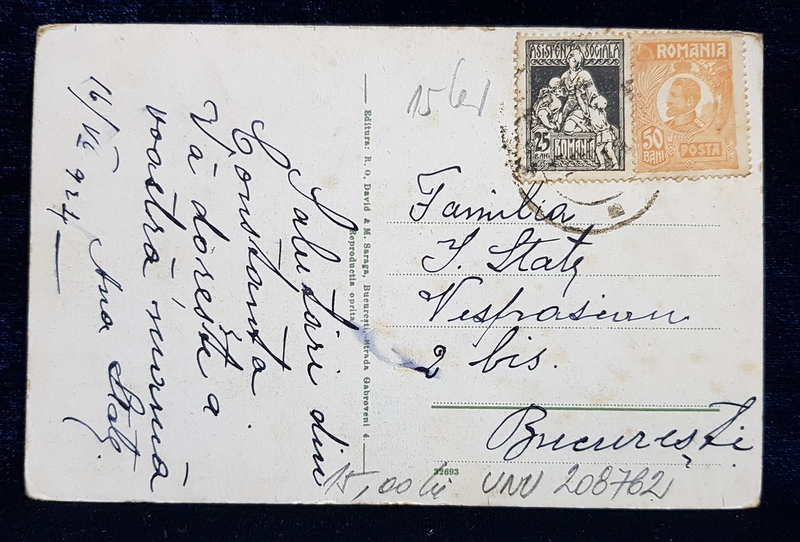 Salutări din
Constanța.
Vă dorește a
voastră, mamă
Ana State.
16/VII 924
Editura: R. O. David & M. Saraga, București, Strada Gabroveni 4.
Reproducția oprita
15 lei
ASISTENȚA SOCIALĂ
25
BANI
ROMANIA
ROMANIA
50
BANI
POSTA
Familia
I. State
Vespasian
2 bis.
București
32693
15,00 lei VNV 208762